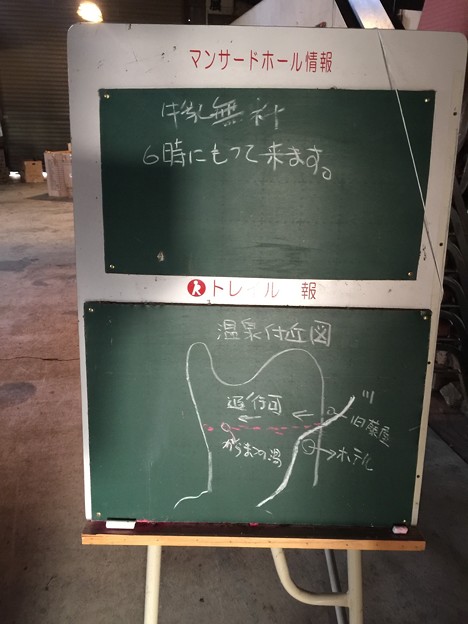 マンサードホール情報
牛乳無料
6時にもって来ます。
トレイル 報
温泉付近図
通行可
川
旧藤屋
からまつの湯
ホテル